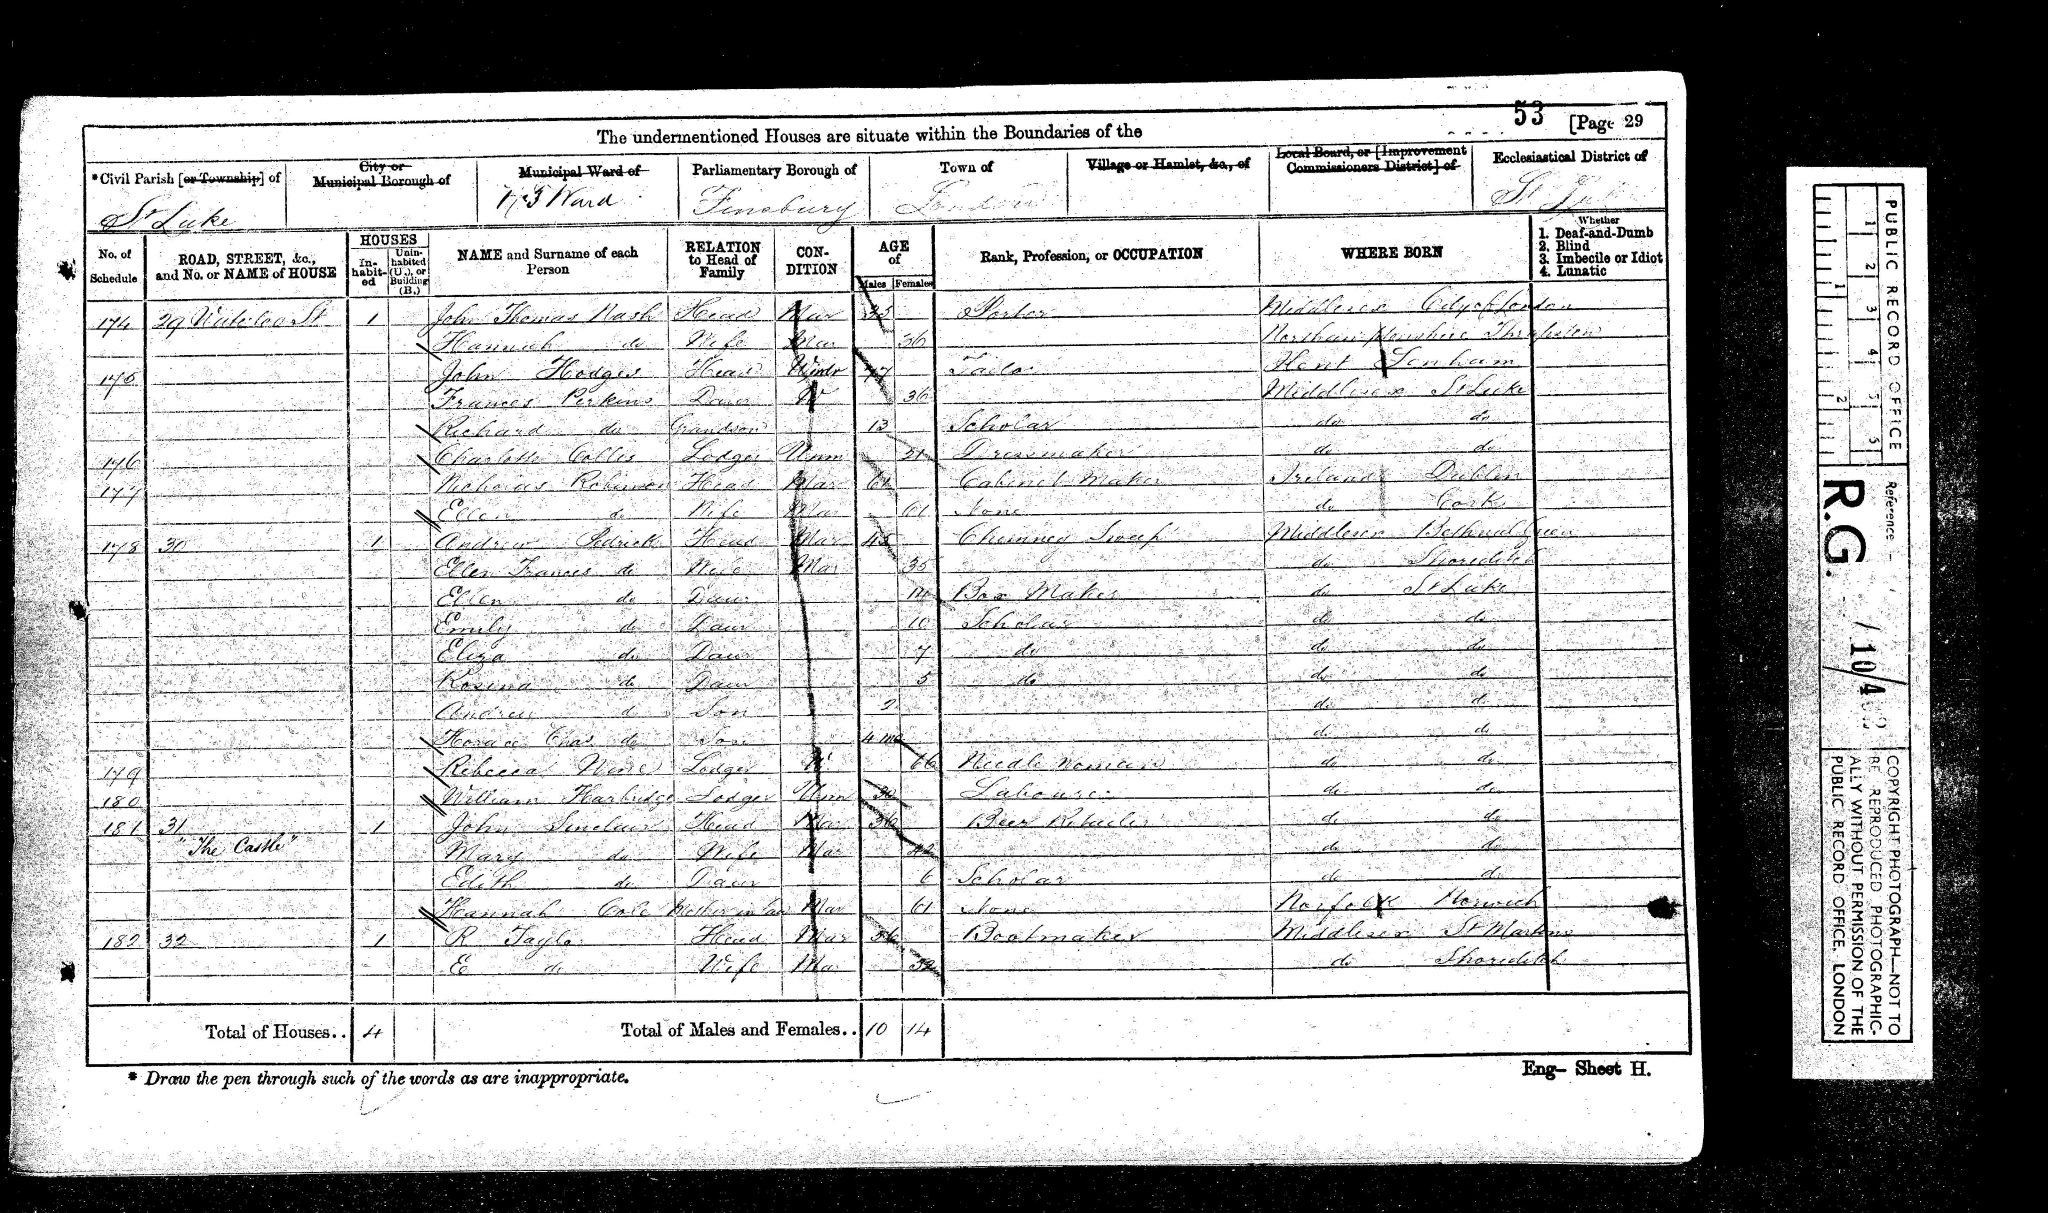 53 [Page 29
The undermentioned Houses are situate within the Boundaries of the
*Civil Parish [or Township] of City or Municipal Borough of Municipal Ward of Parliamentary Borough of Town of Village or Hamlet, &c., of Local Board, or [Improvement Commissioners District] of Ecclesiastical District of
St Luke Ward Finsbury London St
No. of Schedule ROAD, STREET, &c., and No. or NAME of HOUSE HOUSES Inhabited Uninhabited (U.), or Building (B.) NAME and Surname of each Person RELATION to Head of Family CONDITION AGE of Males Females Rank, Profession, or OCCUPATION WHERE BORN Whether 1. Deaf-and-Dumb 2. Blind 3. Imbecile or Idiot 4. Lunatic
174 29 Waterloo St 1 John Thomas Nash Head Mar 35 Porter Middlesex City of London
Hannah do Wife Mar 36 Northamptonshire
175 John Hodges Head Widr 77 Tailor Kent Lenham
Frances Perkins Daur W 36 Middlesex St Luke
Richard do Grandson 13 Scholar do do
176 Charlotte Collis Lodger Unm 51 Dressmaker do do
177 Nicholas Robinson Head Mar 61 Cabinet Maker Ireland Dublin
Ellen do Wife Mar 61 None do Cork
178 30 1 Andrew Pedrick Head Mar 45 Chimney Sweep Middlesex Bethnal Green
Ellen Frances do Wife Mar 35 do Shoreditch
Ellen do Daur Box Maker do St Luke
Emily do Daur 10 Scholar do do
Eliza do Daur 7 do do do
Rosina do Daur 5 do do do
Andrew do Son 2 do do
Horace Chas do Son 4 mo do do
179 Rebecca Lodger W 66 Needle woman do do
180 William Harbridge Lodger Unm 30 Labourer do do
181 31 1 John Sinclair Head Mar 36 Beer Retailer do do
"The Castle" Mary do Wife Mar 42 do do
Edith do Daur 6 Scholar do do
Hannah Cole Mother in law Mar 61 None Norfolk Norwich
182 32 1 R Taylor Head Mar 36 Bootmaker Middlesex St Martins
E do Wife Ma 32 do Shoreditch
Total of Houses.. 4 Total of Males and Females.. 10 14
* Draw the pen through such of the words as are inappropriate.
Eng- Sheet H.
PUBLIC RECORD OFFICE
1 2 3 4 5
1 2
Reference -
R.G. 10/
COPYRIGHT PHOTOGRAPH—NOT TO
BE REPRODUCED PHOTOGRAPHIC-
ALLY WITHOUT PERMISSION OF THE
PUBLIC RECORD OFFICE, LONDON